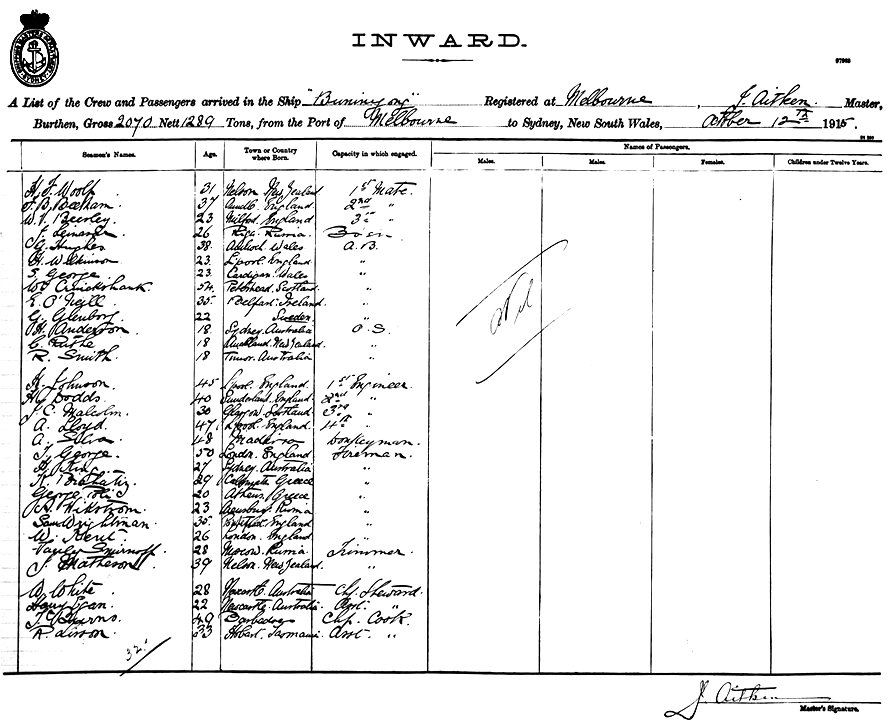 INWARD.
A List of the Crew and Passengers arrived in the Ship "Buninyong" Registered at Melbourne, J. Aitken Master,
Burthen, Gross 2070 Nett 1289 Tons, from the Port of Melbourne to Sydney, New South Wales, October 12th 1915.
Seamen's Names. Age. Town or Country where Born. Capacity in which engaged. Names of Passengers.
Males. Males. Females. Children under Twelve Years.
H. F. Woolf 31 Nelson New Zealand 1st Mate
F. B. Beetham 37 England 2nd "
W. V. Beerley 23 Milford England 3rd "
J. 26 Riga Russia Bosn
G. Hughes 38 Wales A.B.
H. Wilkinson 23 L'pool England "
S. George 23 Cardigan Wales "
W. Cruickshank 54 Peterhead Scotland "
E. O'Neill 35 Belfast Ireland "
G. Glenborg 22 Sweden "
H. Anderson 18 Sydney Australia O.S.
C. Ruthe 18 Auckland New Zealand "
R. Smith 18 Australia "
H. Johnson 45 L'pool England 1st Engineer
H. Dodds 40 Sunderland England 2nd "
J. C. Malcolm 30 Glasgow Scotland 3rd "
A. Lloyd 47 L'pool England 4th "
A. Silva 48 Maderia Donkeyman
T. George 50 London England Foreman
H. King 27 Sydney Australia "
K. 29 Greece "
George 20 Athens Greece "
A. Wikstrom 23 Russia "
Sam Wrightman 35 Pontefract England "
W. Kent 26 London England "
Vasily Smirnoff 28 Moscow Russia Trimmer
J. Matheson 39 Nelson New Zealand "
W. White 28 Newcastle Australia Chf. Steward
Harry Egan 22 Newcastle Australia Asst. "
T. Burns 49 Barbadoes Chf. Cook
R. Lisson 33 Hobart Tasmania Asst. "
32.
J. Aitken
Master's Signature.